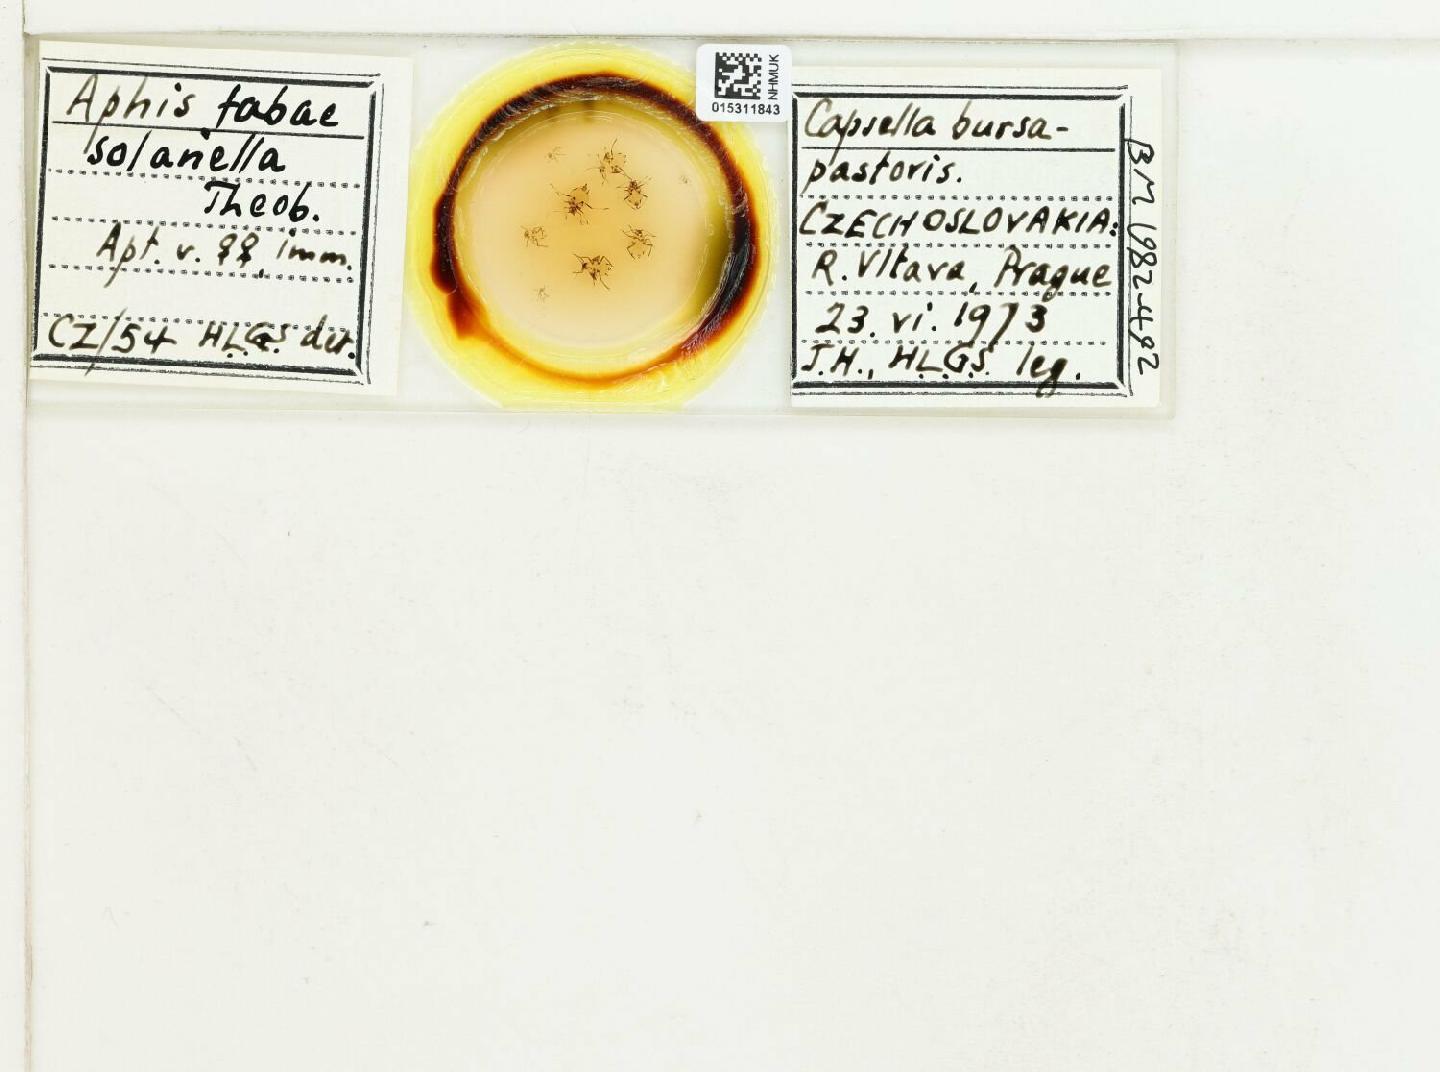 Aphis fabae
solanella
Theob.
Apt. v. ♀♀, imm.
CZ/54 H.L.G.S. det.
NHMUK
015311843
Capsella bursa-
pastoris.
CZECHOSLOVAKIA:
R. Vltava, Prague
23. vi. 1973
J.H., H.L.G.S. leg.
BM 1982-492